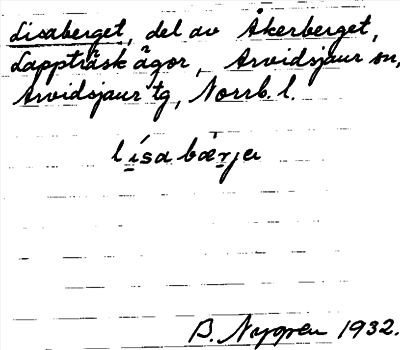 Lisaberget, del av Åkerberget,
Lappträsk ägor, Arvidsjaur sn,
Arvidsjaur tg, Norrb. l.
lísa bærjer
B. Nygren 1932.